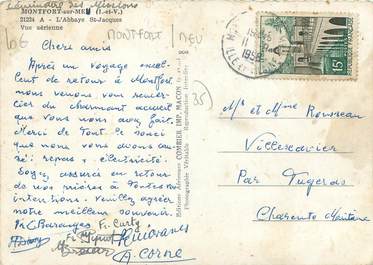 Séminaire des Missions
MONTFORT-sur-MEU (I.-et-V.)
21224 A - L'Abbaye St-Jacques
Vue aérienne
MONTFORT MEU
35
Chers amis
Après un voyage excellent
de retour à Montfort,
nous venons vous remercier
du charmant accueil
que vous nous avez fait.
Merci de tout le souci
que nous vous avons causé :
repas, électricité.
Soyez assurés en retour
de nos prières à toutes vos
intentions. Veuillez agréer
notre meilleur souvenir.
Fr. Curty
A. Corne
Editions Aériennes COMBIER IMP. MACON
Photographie Véritable Reproduction Interdite
15F
Mr et Mme Rousseau
Villexavier
Par
Charente Maritime